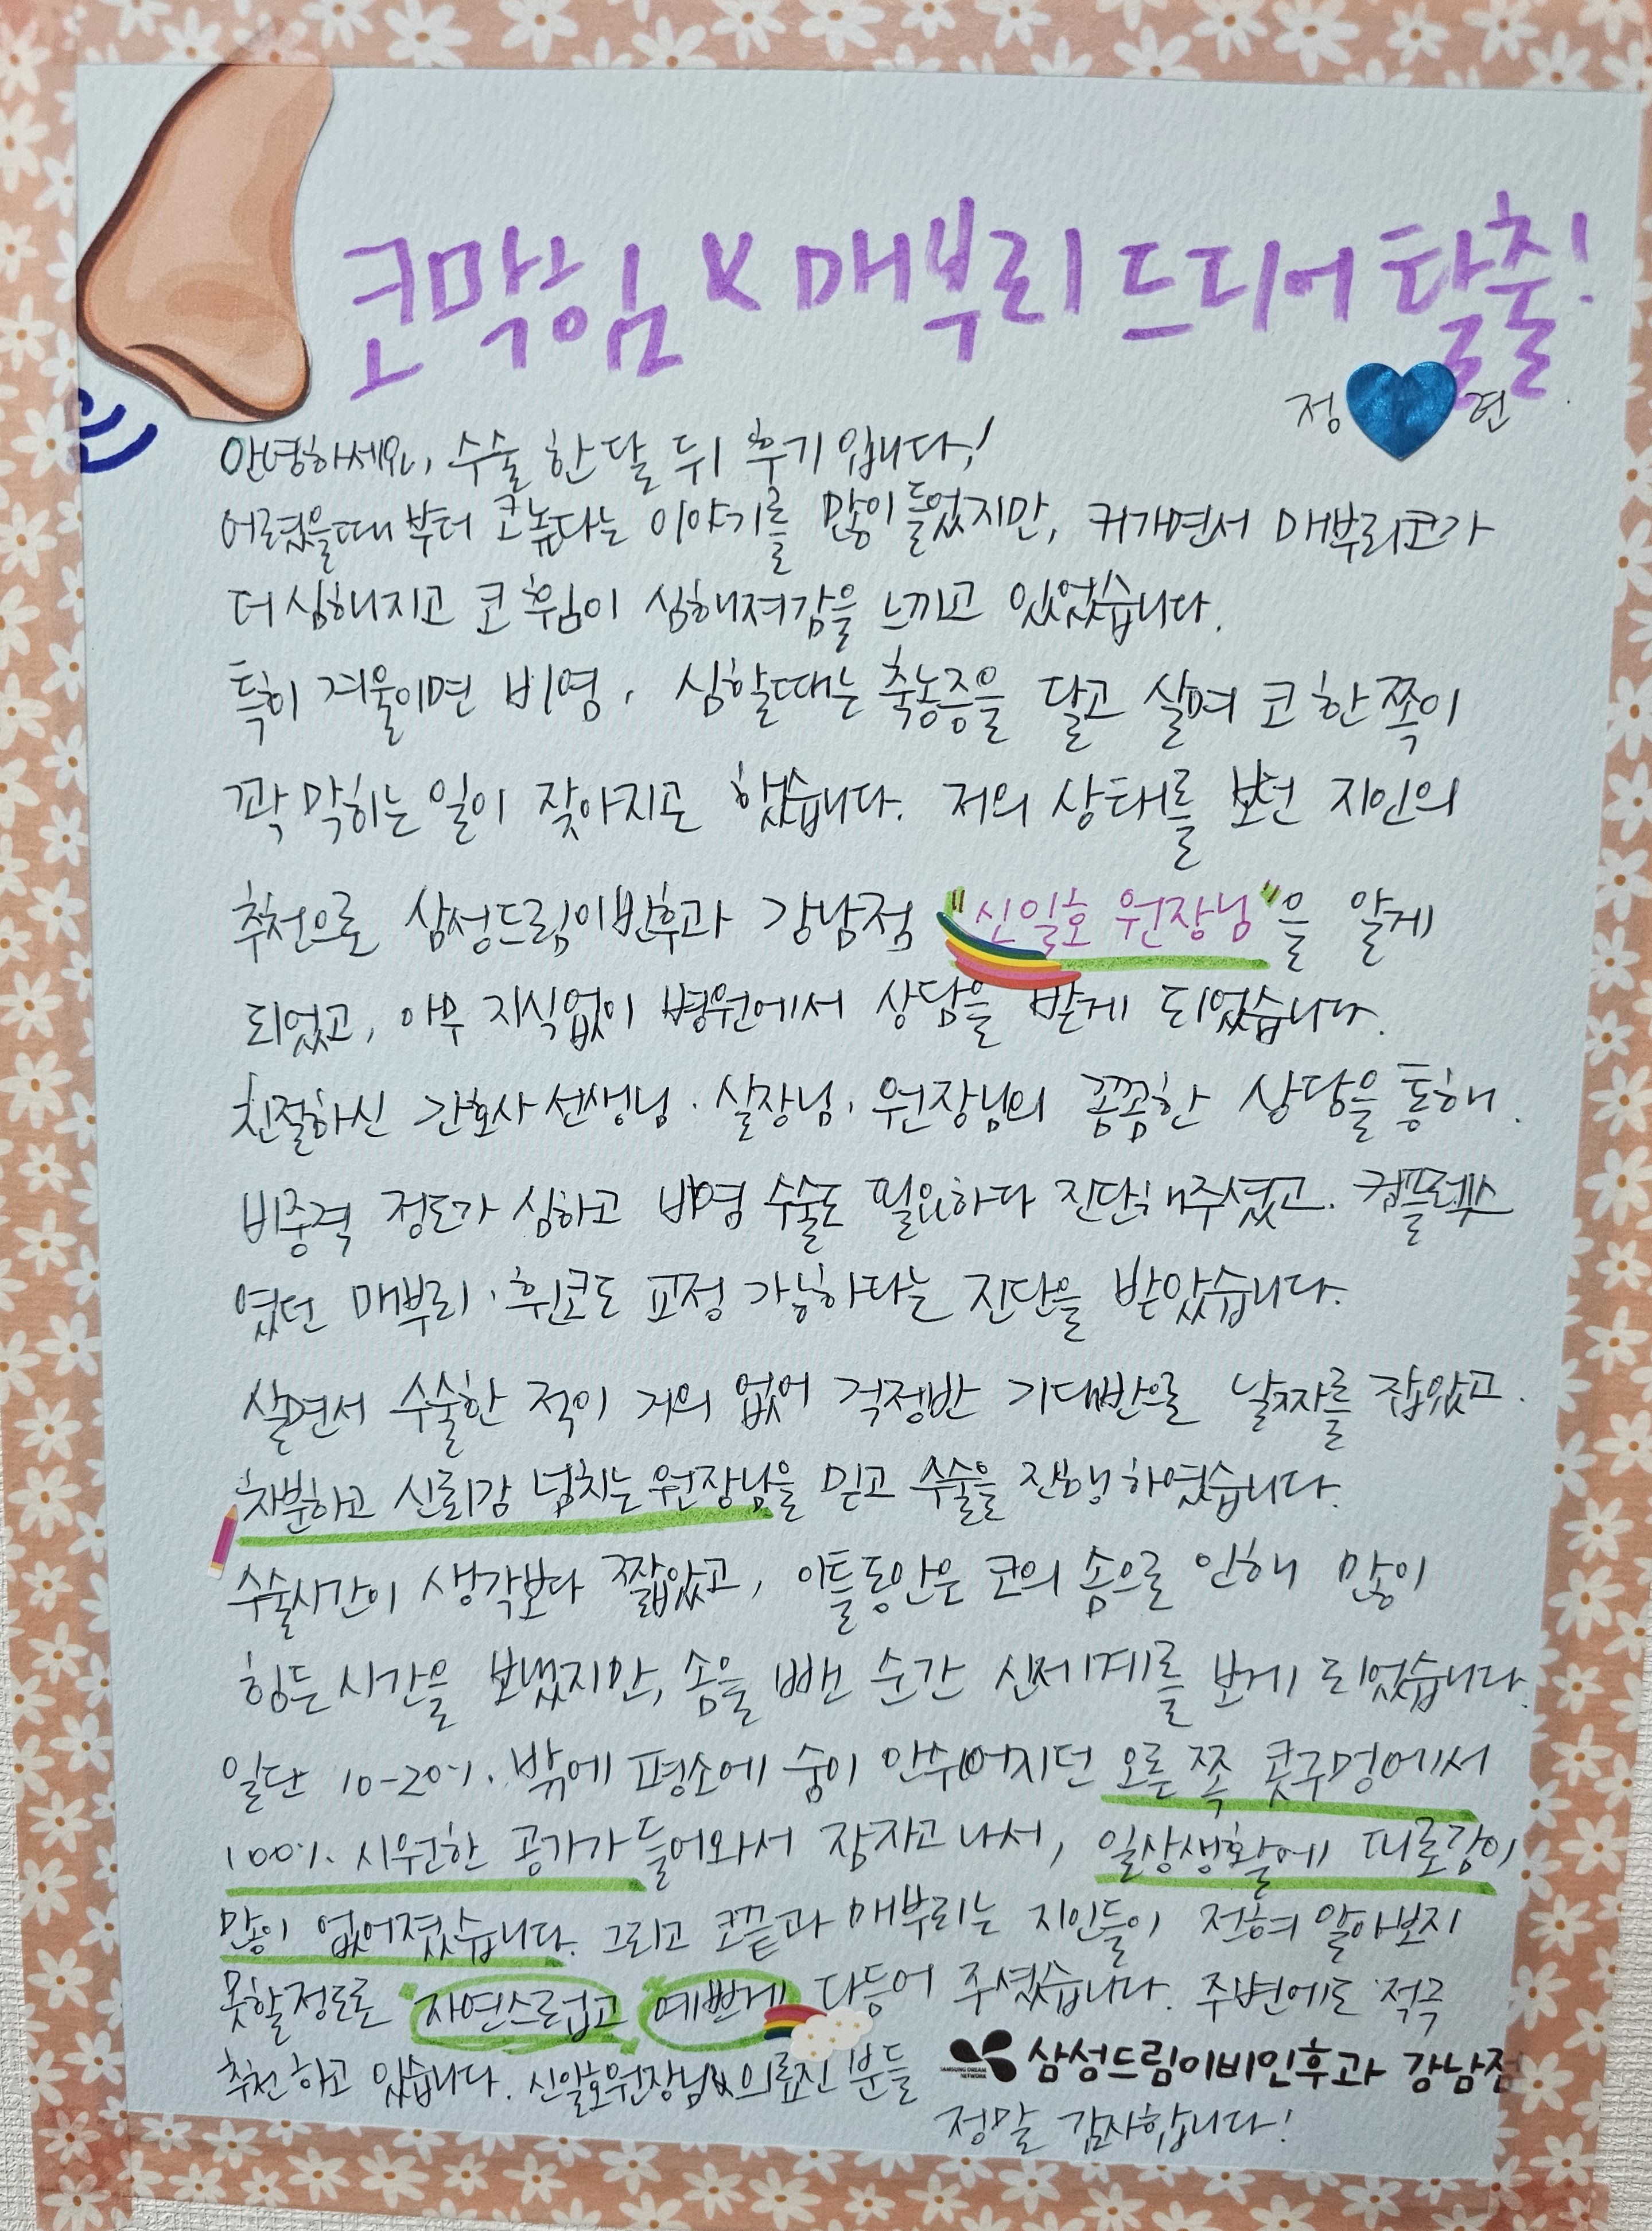 코막힘 & 매부리 드디어 탈출!
정 현
안녕하세요, 수술 한달 뒤 후기입니다!
어렸을때부터 코높다는 이야기를 많이 들었지만, 커가면서 매부리코가
더 심해지고 코 휨이 심해져감을 느끼고 있었습니다.
특히 겨울이면 비염, 심할때는 축농증을 달고 살며 코 한쪽이
꽉 막히는 일이 잦아지곤 했습니다. 저의 상태를 보던 지인의
추천으로 삼성드림이빈후과 강남점 "신일호 원장님"을 알게
되었고, 아무 지식없이 병원에서 상담을 받게 되었습니다.
친절하신 간호사 선생님, 실장님, 원장님의 꼼꼼한 상담을 통해,
비중격 정도가 심하고 비염 수술도 필요하다 진단해주셨고, 컴플렉스
였던 매부리, 휜코도 교정 가능하다는 진단을 받았습니다.
살면서 수술한 적이 거의 없어 걱정반 기대반으로 날짜를 잡았고,
차분하고 신뢰감 넘치는 원장님을 믿고 수술을 진행하였습니다.
수술시간이 생각보다 짧았고, 이틀동안은 코의 솜으로 인해 많이
힘든 시간을 보냈지만, 솜을 뺀 순간 신세계를 보게 되었습니다.
일단 10-20% 밖에 평소에 숨이 안쉬어지던 오른쪽 콧구멍에서
100% 시원한 공기가 들어와서 잠자고 나서, 일상생활에 피로감이
많이 없어졌습니다. 그리고 코끝과 매부리는 지인들이 전혀 알아보지
못할정도로 "자연스럽고" "예쁘게 다듬어 주셨습니다. 주변에도 적극
추천하고 있습니다. 신일호원장님& 의료진 분들 SAMSUNG DREAM NETWORK 삼성드림이비인후과 강남점
정말 감사합니다!